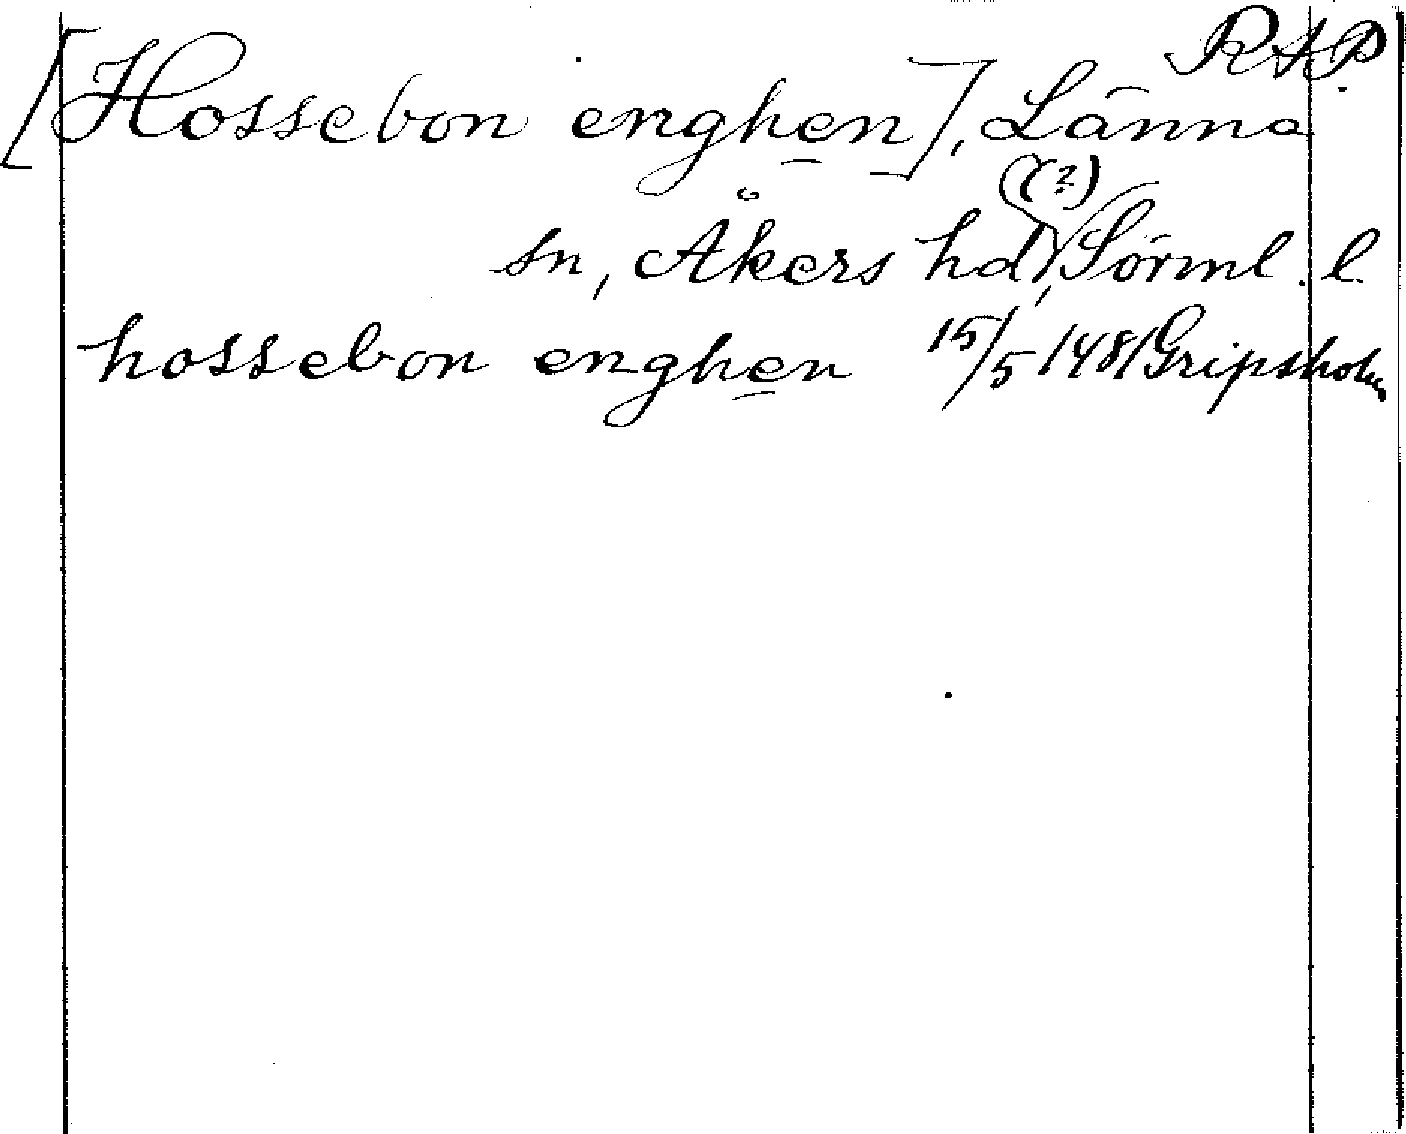 RAP
[Hossebon enghen], Länna
sn, Åkers hd (?), Sörml. l.
hossebon enghen 15/5 1481 Gripsholm